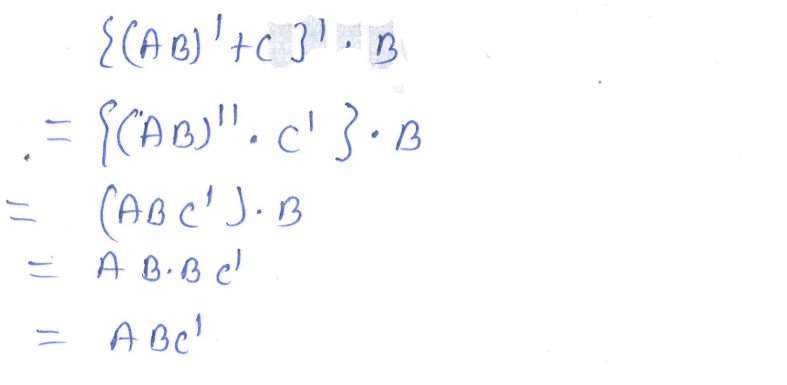 {(AB)'+C}'·B
= {(AB)''·C'}·B
= (ABC')·B
= AB·BC'
= ABC'